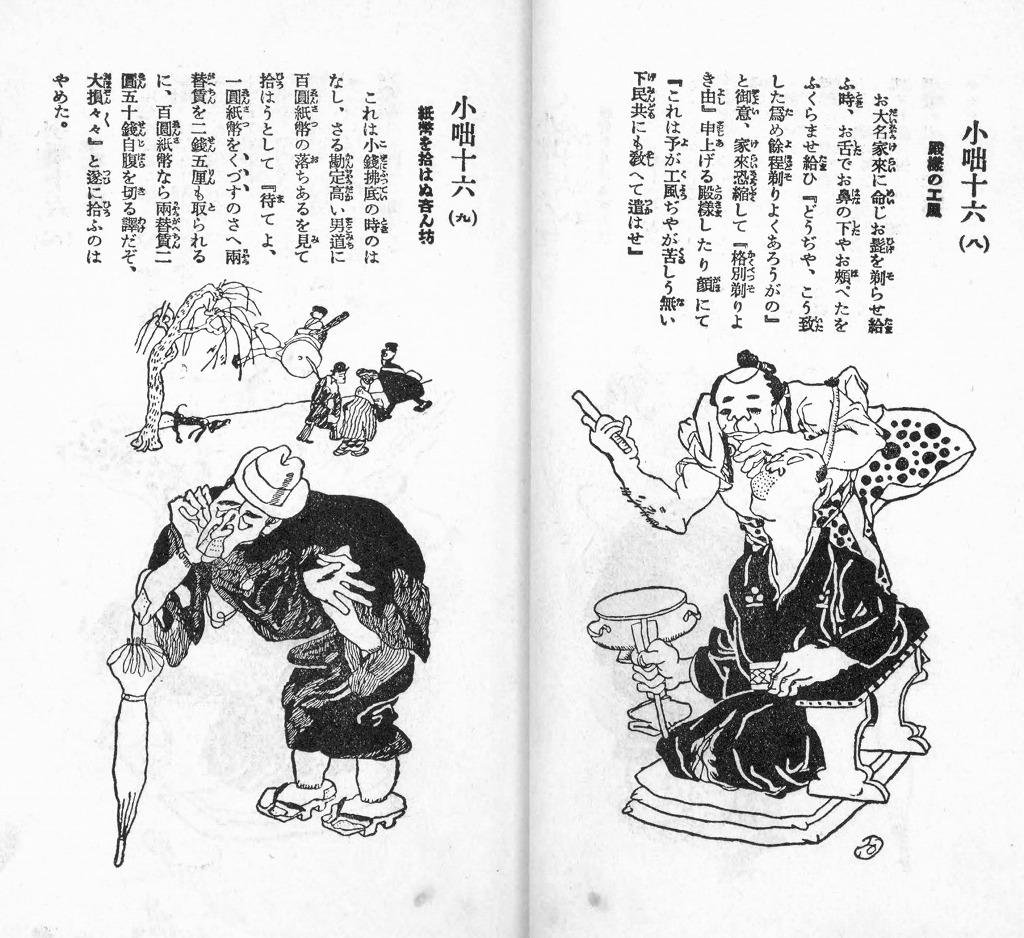 小咄十六(八)
殿樣の工風
お大名家來に命じお髭を剃らせ給
ふ時、お舌でお鼻の下やお頰ぺたを
ふくらませ給ひ『どうぢや、こう致
した爲め餘程剃りよくあろうがの』
と御意、家來恐縮して『格別剃りよ
き由』申上げる殿樣したり顏にて
『これは予が工風ぢやが苦しう無い
下民共にも敎へて遣はせ』
小咄十六(九)
紙幣を拾はぬ吝ん坊
これは小錢拂底の時のは
なし。さる勘定高い男道に
百圓紙幣の落ちあるを見て
拾はうとして『待てよ、
一圓紙幣をくづすのさへ兩
替賃を二錢五厘も取られる
に、百圓紙幣なら兩替賃二
圓五十錢自腹を切る譯だぞ、
大損々々』と遂に拾ふのは
やめた。